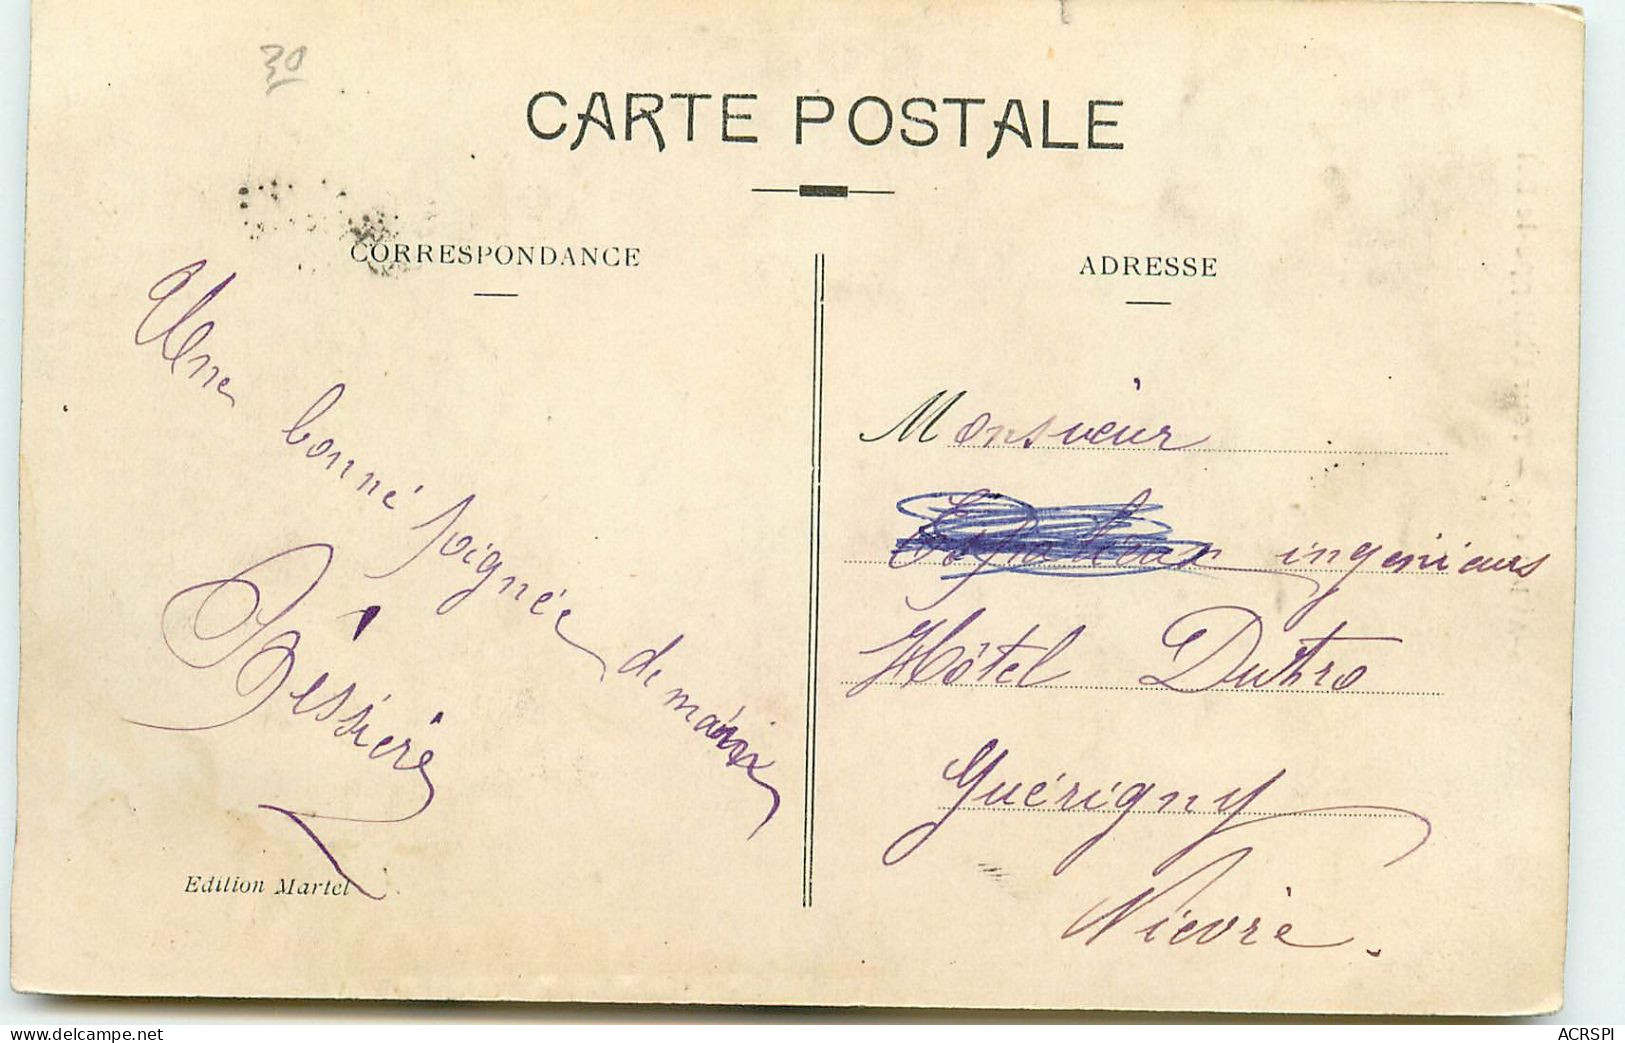 30
CARTE POSTALE
CORRESPONDANCE
Une bonne poignée de main
Bessière
Edition Martel
ADRESSE
Monsieur
ingénieur
Hôtel Dutro
Guérigny
Nièvre.
ACRSPI